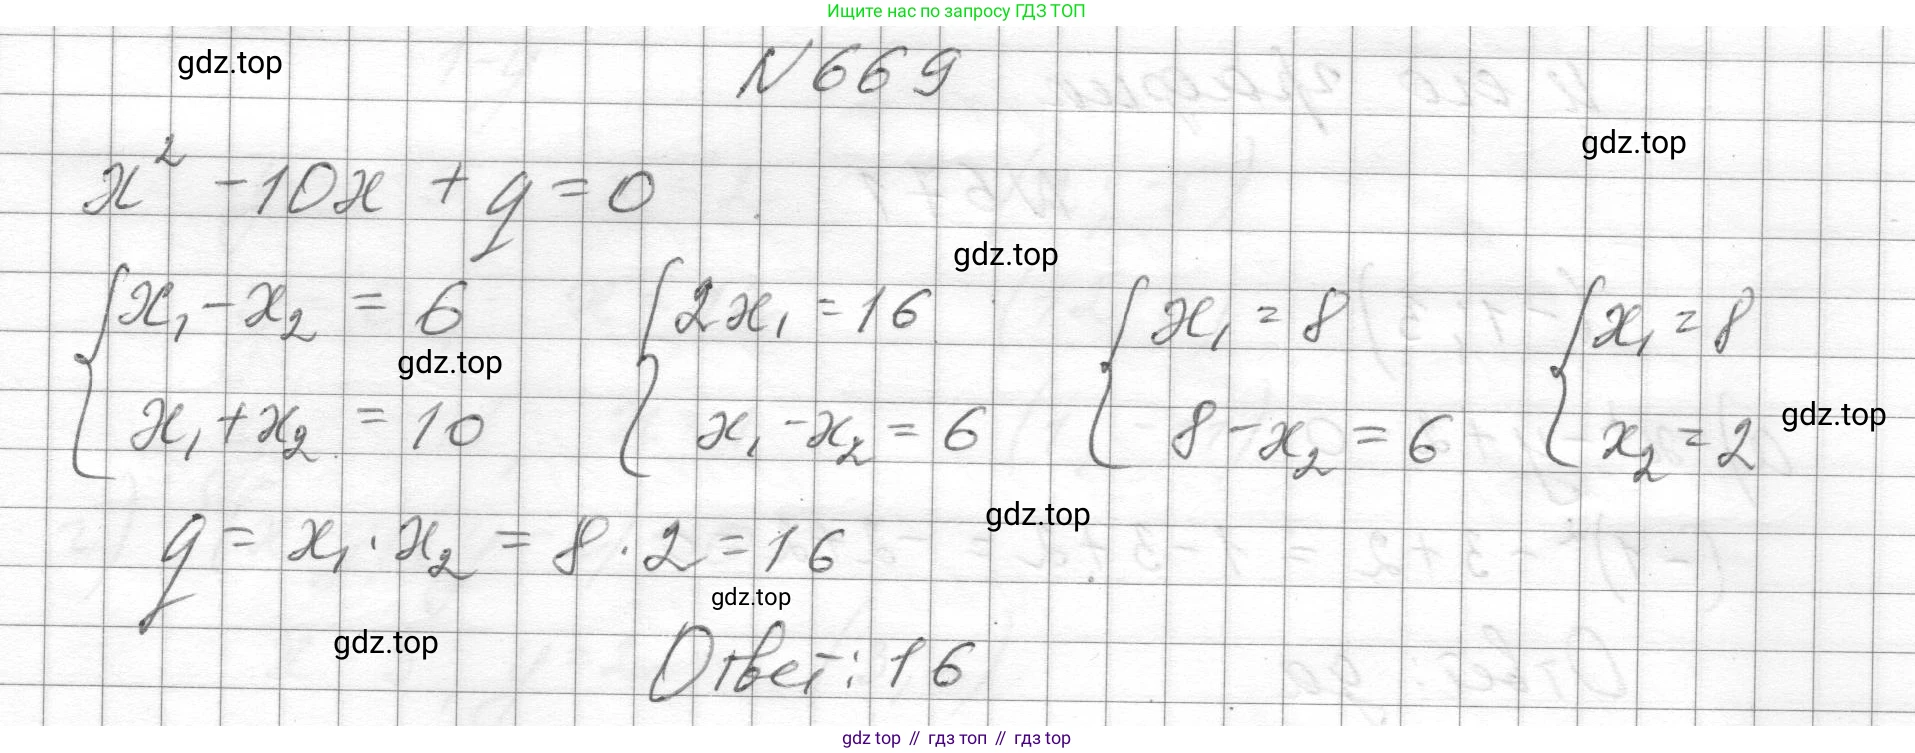 Ищите нас по запросу ГДЗ ТОП
gdz.top
N 669
gdz.top
x² - 10x + q = 0
gdz.top
{ x₁ - x₂ = 6 { 2x₁ = 16 { x₁ = 8 { x₁ = 8
gdz.top
x₁ + x₂ = 10 x₁ - x₂ = 6 8 - x₂ = 6 x₂ = 2
gdz.top
gdz.top
q = x₁ · x₂ = 8 · 2 = 16
gdz.top
gdz.top
Ответ: 16
gdz top // гдз топ // гдз top